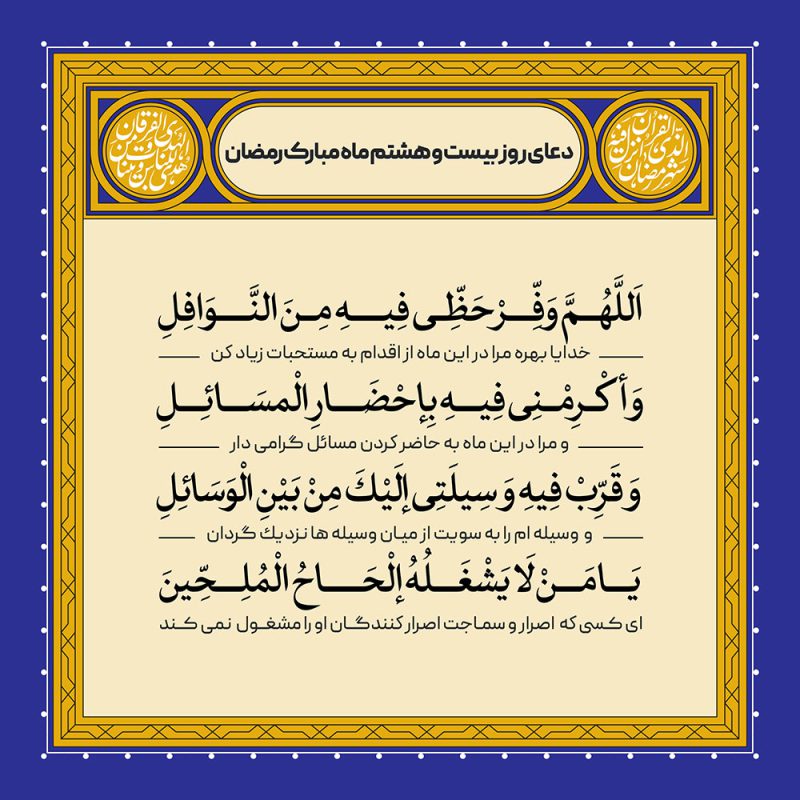 دعای روز بیست و هشتم ماه مبارک رمضان
شهر رمضان الذی انزل فیه القرآن
هدی للناس و بینات من الهدی و الفرقان
اَللَّهُمَّ وَفِّرْ حَظِّی فِیهِ مِنَ النَّوَافِلِ
خدایا بهره مرا در این ماه از اقدام به مستحبات زیاد کن
وَأکْرِمْنِی فِیهِ بِإحْضَارِ الْمسَائِلِ
و مرا در این ماه به حاضر کردن مسائل گرامی دار
وَ قَرِّبْ فِیهِ وَ سِیلَتِی إلَیْكَ مِنْ بَیْنِ الْوَسَائِلِ
و وسیله ام را به سویت از میان وسیله ها نزدیك گردان
یَا مَنْ لَا یَشْغَلُهُ إلْحَاحُ الْمُلِحِّینَ
ای کسی که اصرار و سماجت اصرار کنندگان او را مشغول نمی کند